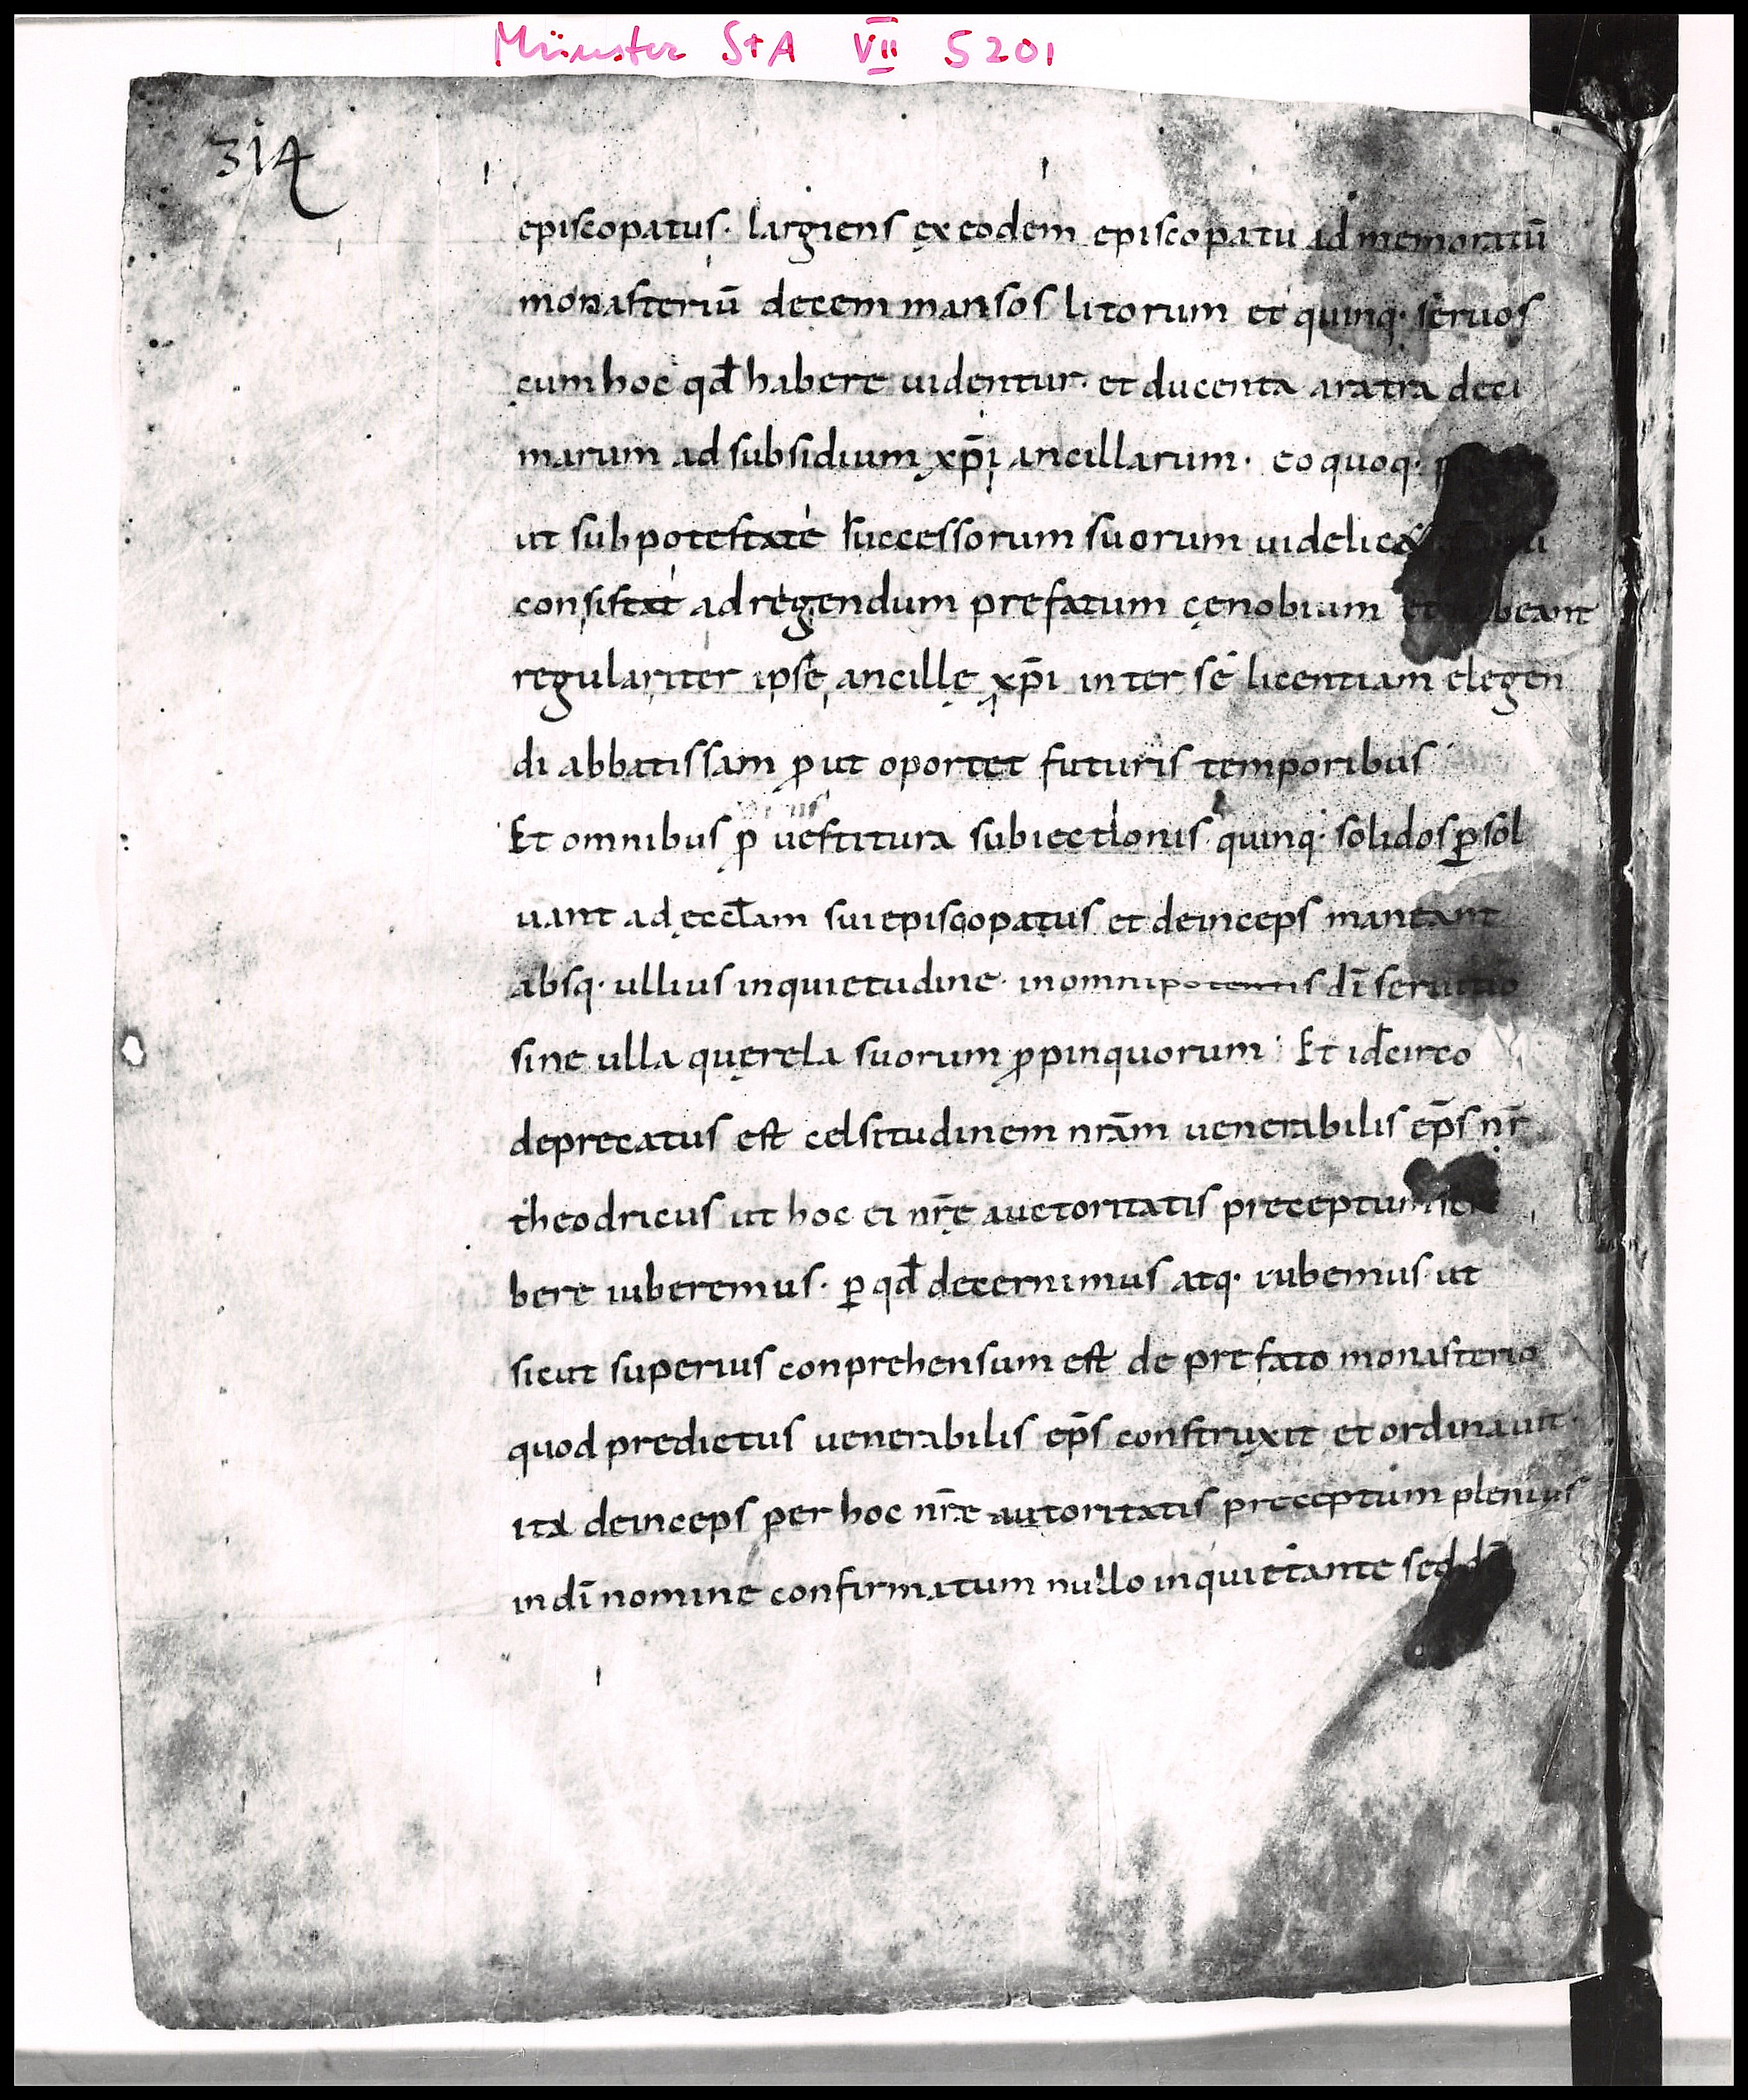 Münster StA VII 5201
314
episcopatus· largiens ex eodem episcopatu ad memoratū
monasteriū decem mansos litorum et quinq· seruos
cum hoc qđ habere uidentur· et ducenta aratra deci
marum ad subsidium xp̄i ancillarum· eo quoq·
ut sub potestate successorum suorum uidelicet
consistat ad regendum prefatum cęnobium et
regulariter ipsę ancillę xp̄i inter se licentiam elegen
di abbatissam ꝓut oportet futuris temporibus
Et omnibus ꝓ uestitura subiectionis quinq· solidos ꝑsol
uant ad ęccłam sui episcopatus et deinceps maneant
absq· ullius inquietudine· in omnipotentis dī seruitio
sine ulla querela suorum ꝓpinquorum· Et idcirco
deprecatus est celsitudinem nrām uenerabilis ep̄s nr̄
theodricus ut hoc ei nr̄ę auctoritatis preceptum
bere iuberemus· ꝑ qđ decernimus atq· iubemus ut
sicut superius conprehensum est de prefato monasterio
quod predictus uenerabilis ep̄s construxit et ordinauit·
ita deinceps per hoc nr̄e autoritatis preceptum plenius
in dī nomine confirmatum nullo inquietante sed